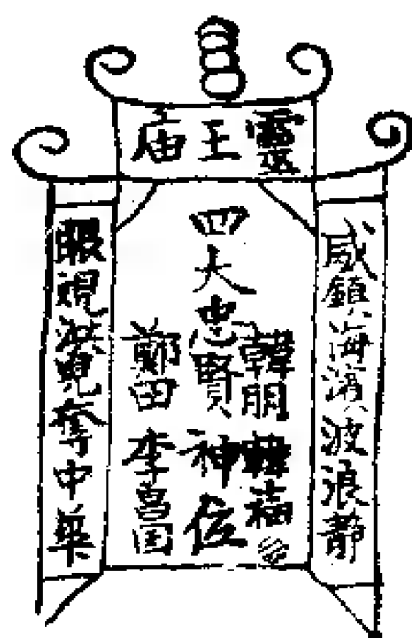 靈王庙
威鎮海濱波浪靜
四大忠賢神位
韓朋 韓福
鄭田 李昌国
眼視洪兒奪中華